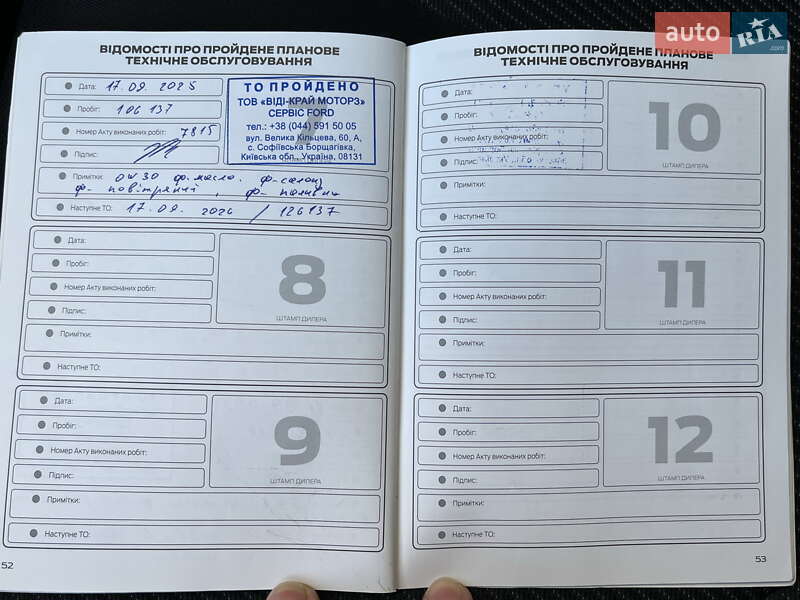 auto RIA .com
ВІДОМОСТІ ПРО ПРОЙДЕНЕ ПЛАНОВЕ
ТЕХНІЧНЕ ОБСЛУГОВУВАННЯ
Дата: 17.09.2025
Пробіг: 106 137
Номер Акту виконаних робіт: 7815
Підпис:
ТО ПРОЙДЕНО
ТОВ «ВІДІ-КРАЙ МОТОРЗ»
СЕРВІС FORD
тел.: +38 (044) 591 50 05
вул. Велика Кільцева, 60, А,
с. Софіївська Борщагівка,
Київська обл., Україна, 08131
Примітки: 0W30 ф-масло. ф-салону
ф-повітряний, ф-палива
Наступне ТО: 17.09.2026 / 126137
Дата:
Пробіг:
Номер Акту виконаних робіт:
Підпис:
8
ШТАМП ДИЛЕРА
Примітки:
Наступне ТО:
Дата:
Пробіг:
Номер Акту виконаних робіт:
Підпис:
9
ШТАМП ДИЛЕРА
Примітки:
Наступне ТО:
52
ВІДОМОСТІ ПРО ПРОЙДЕНЕ ПЛАНОВЕ
ТЕХНІЧНЕ ОБСЛУГОВУВАННЯ
Дата:
Пробіг:
Номер Акту виконаних робіт:
Підпис:
10
ШТАМП ДИЛЕРА
Примітки:
Наступне ТО:
Дата:
Пробіг:
Номер Акту виконаних робіт:
Підпис:
11
ШТАМП ДИЛЕРА
Примітки:
Наступне ТО:
Дата:
Пробіг:
Номер Акту виконаних робіт:
Підпис:
12
ШТАМП ДИЛЕРА
Примітки:
Наступне ТО:
53